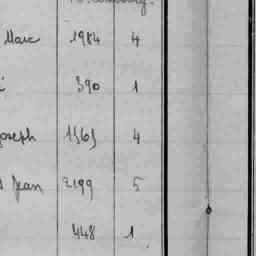 Marc 1984 4
390 1
Joseph 1565 4
Jean 2199 5
448 1